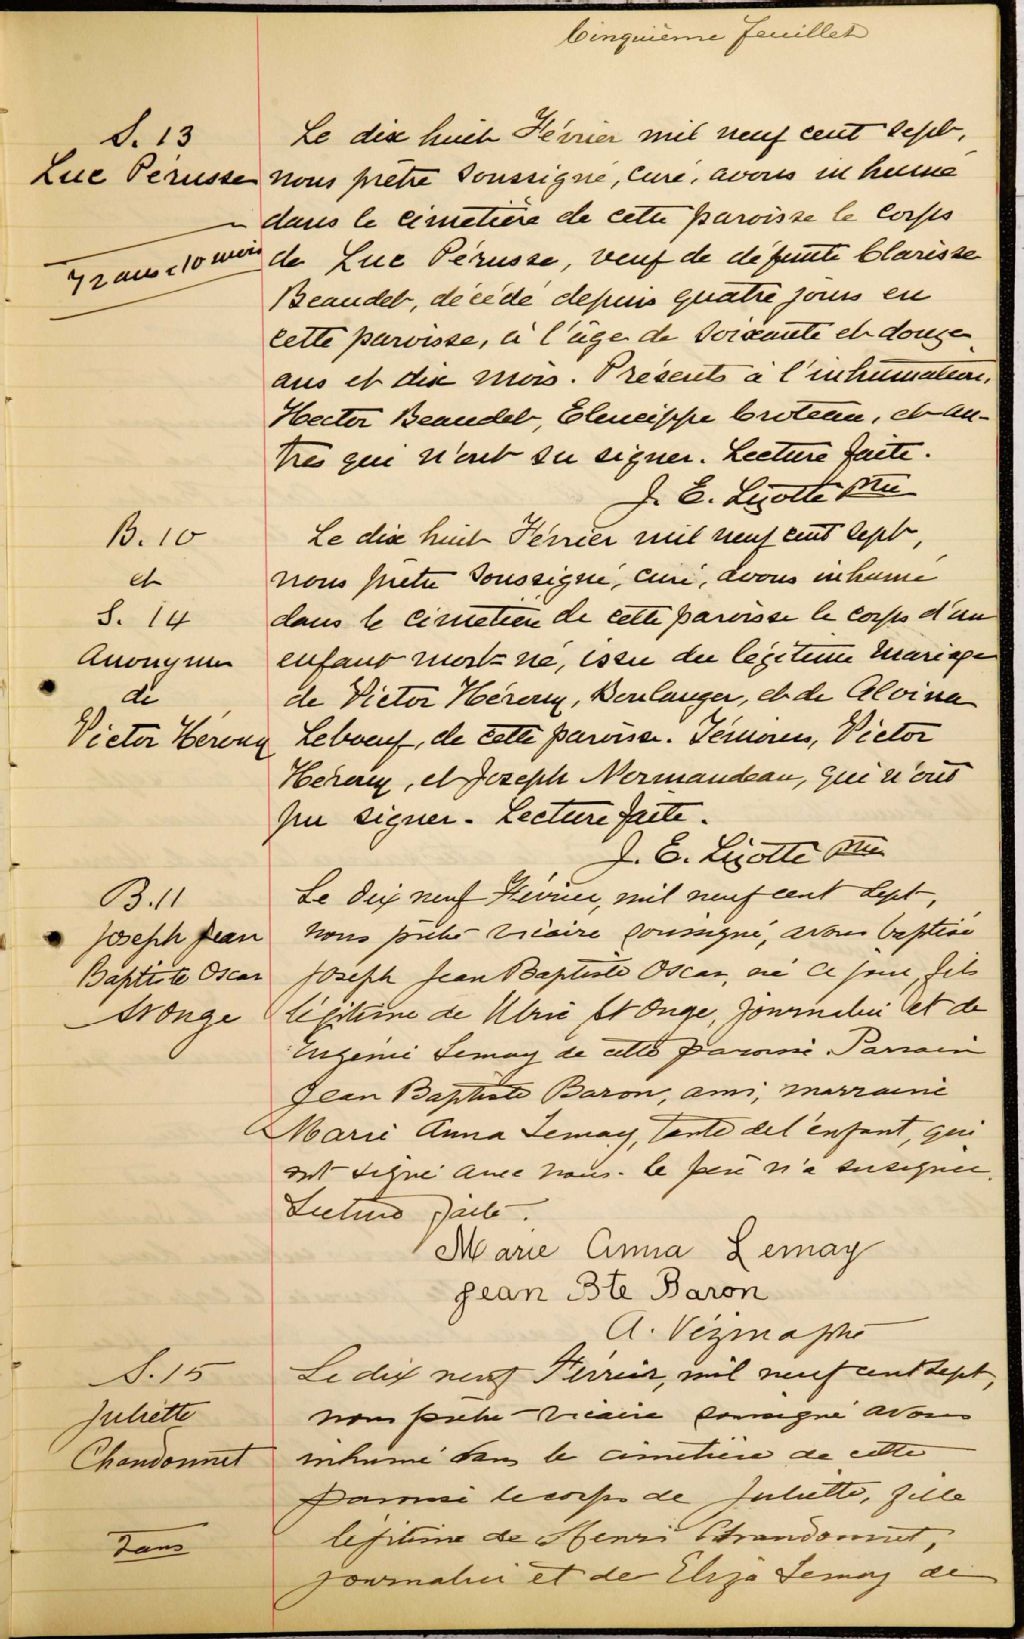 Cinquième feuillet
S. 13
Luc Pérusse
72 ans et 10 mois
Le dix huit Février mil neuf cent sept,
nous prêtre soussigné, curé, avons inhumé
dans le cimetière de cette paroisse le corps
de Luc Pérusse, veuf de défunte Clarisse
Beaudet, décédé depuis quatre jours en
cette paroisse, à l'âge de soixante et douze
ans et dix mois. Présents à l'inhumation,
Hector Beaudet, Eleucippe Croteau, et au-
tres qui n'ont su signer. Lecture faite.
J. E. Lizotte ptre
B. 10
et
S. 14
Anonyme
de
Victor Héroux
Le dix huit Février mil neuf cent sept,
nous prêtre soussigné, curé, avons inhumé
dans le cimetière de cette paroisse le corps d'un
enfant mort-né, issu du légitime mariage
de Victor Héroux, Boulanger, et de Alvina
Leboeuf, de cette paroisse. Témoins, Victor
Héroux, et Joseph Normandeau, qui n'ont
pu signer. Lecture faite.
J. E. Lizotte ptre
B. 11
Joseph Jean
Baptiste Oscar
St Onge
Le dix neuf Février, mil neuf cent sept,
nous prêtre-vicaire soussigné, avons baptisé
Joseph Jean Baptiste Oscar, né ce jour, fils
légitime de Ulric St Onge, journalier et de
Eugénie Lemay de cette paroisse. Parrain
Jean Baptiste Baron, ami, marraine
Marie Anna Lemay, tante de l'enfant, qui
ont signé avec nous. le père n'a su signer.
Lecture faite.
Marie Anna Lemay
Jean Bte Baron
A. Vézina ptre
S. 15
Juliette
Chandonnet
2 ans
Le dix neuf Février, mil neuf cent sept,
nous prêtre-vicaire soussigné avons
inhumé dans le cimetière de cette
paroisse le corps de Juliette, fille
légitime de Henri Chandonnet,
journalier et de Eliza Lemay de